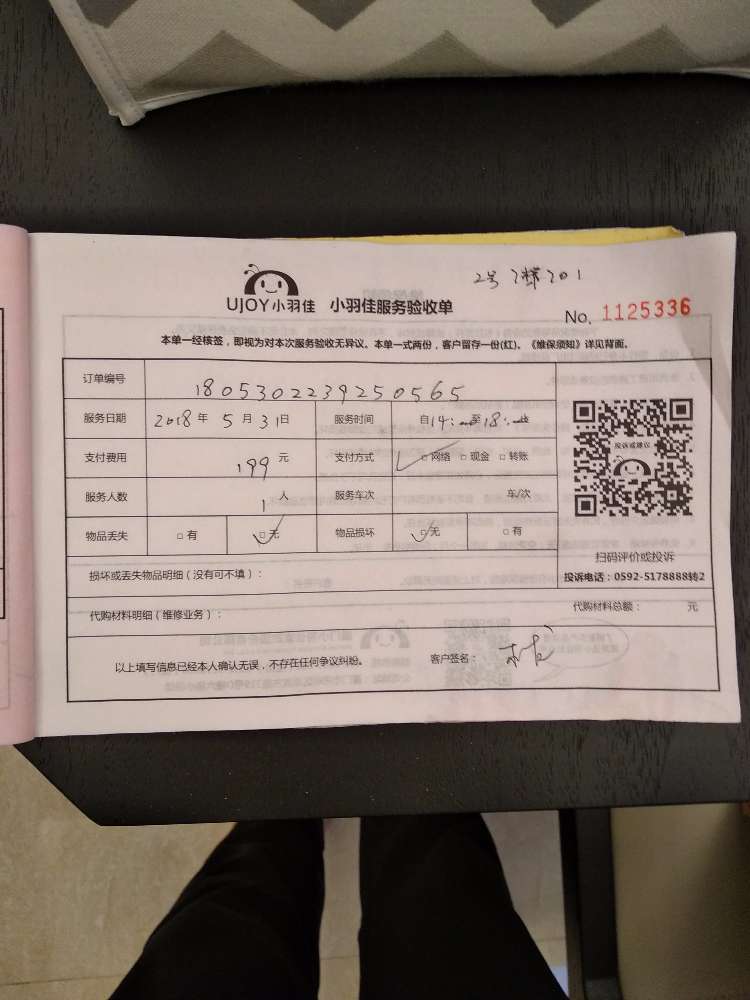 2号7梯701
UJOY小羽佳 小羽佳服务验收单
No. 1125336
本单一经核签，即视为对本次服务验收无异议。本单一式两份，客户留存一份(红)。《维保须知》详见背面。
订单编号 1805302239250565
服务日期 2018年5月31日 服务时间 自14: 至18:
支付费用 199元 支付方式 □网络 □现金 □转账
服务人数 1人 服务车次 车/次
物品丢失 □有 □无 物品损坏 □无 □有
投诉或建议
扫码评价或投诉
投诉电话：0592-5178888转2
损坏或丢失物品明细（没有可不填）：
代购材料明细（维修业务）： 代购材料总额： 元
以上填写信息已经本人确认无误，不存在任何争议纠纷。 客户签名：